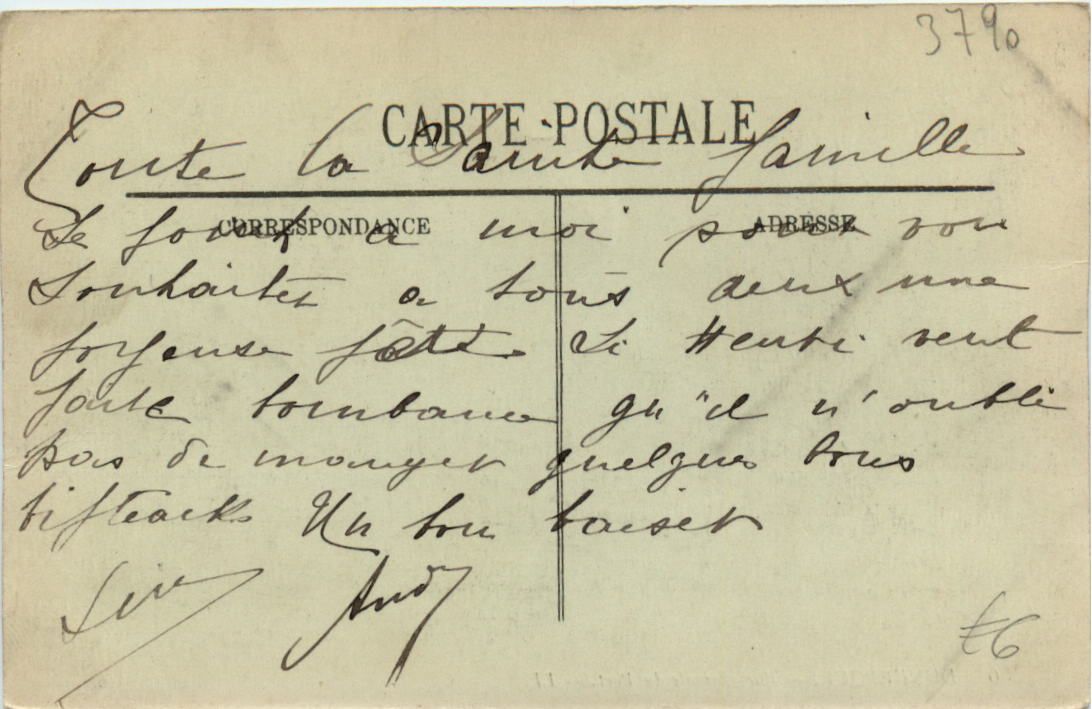 3790
CARTE POSTALE
Toute la Sainte famille
CORRESPONDANCE
ADRESSE
se joint à moi pour vous
souhaiter a tous deux une
joyeuse fête. Si Henri veut
faire bombance qu'il n'oublie
pas de manger quelques bons
bifteacks Un bon baiser
£6